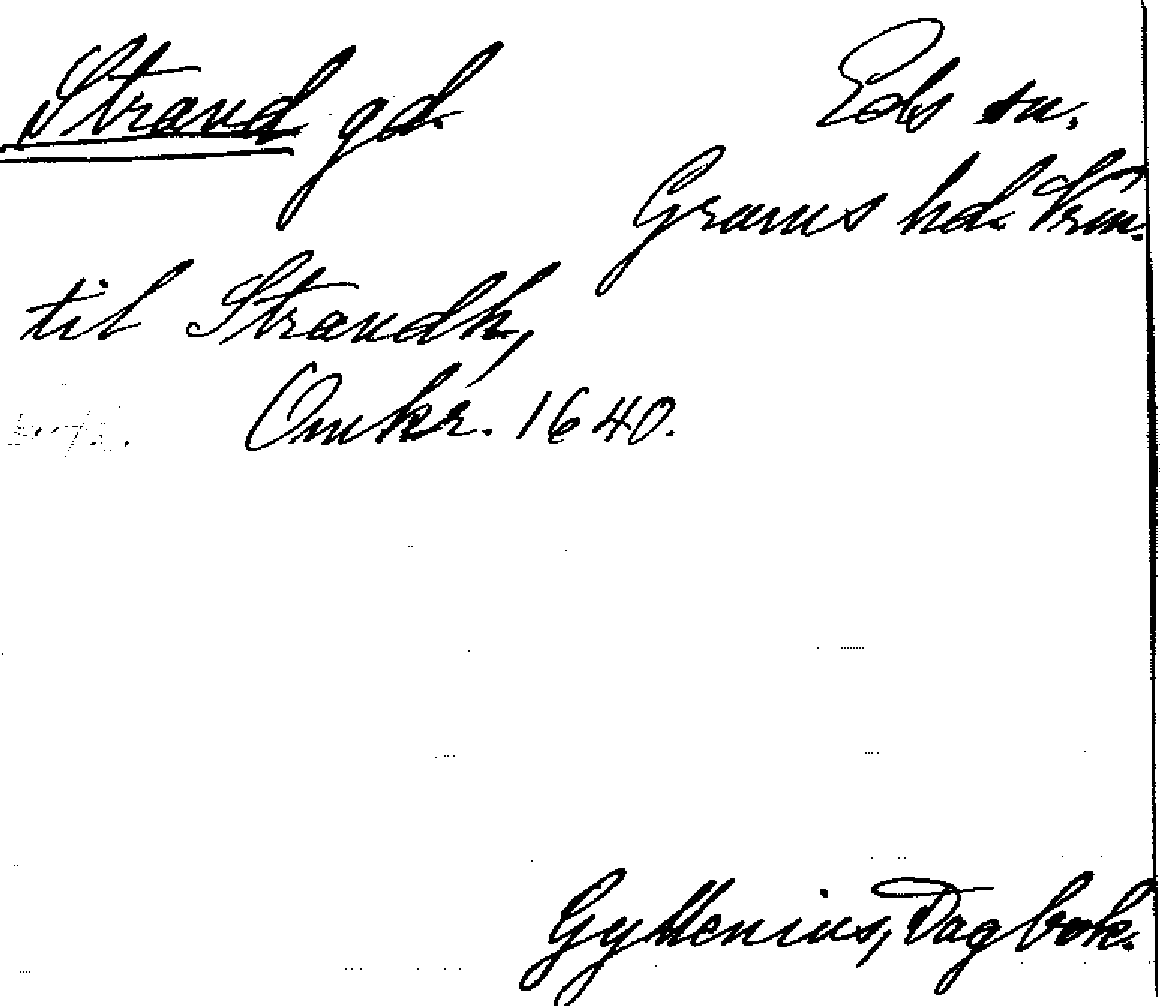 Strand gd. Eds sn.
Grums hd. Vrm.
til Strandh,
Omkr. 1640.
Gyllenius, Dagbok.